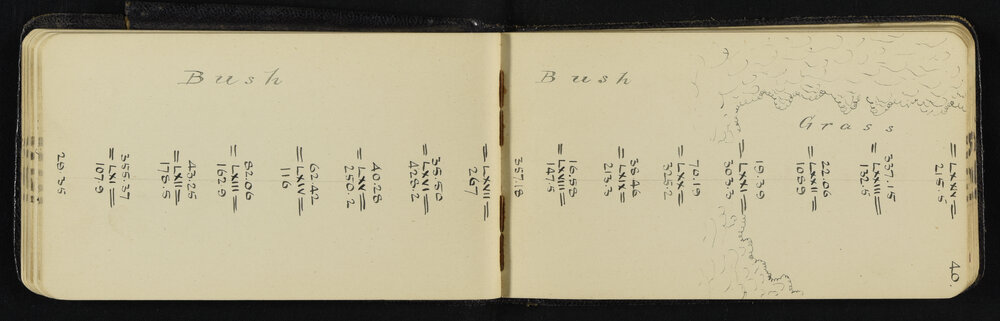 Bush
29.35
107.9
= LXI =
355.37
178.5
= LXII =
43.25
162.9
= LXIII =
82.06
116
= LXIV =
62.42
250.2
= LXV =
40.28
428.2
= LXVI =
35.50
267
= LXVII =
Bush
357.18
147.5
= LXVIII =
16.58
213.3
= LXIX =
38.46
325.2
= LXX =
70.19
303.3
= LXXI =
19.39
108.9
= LXXII =
22.06
132.5
= LXXIII =
337.15
Grass
215.5
= LXXIV =
40.